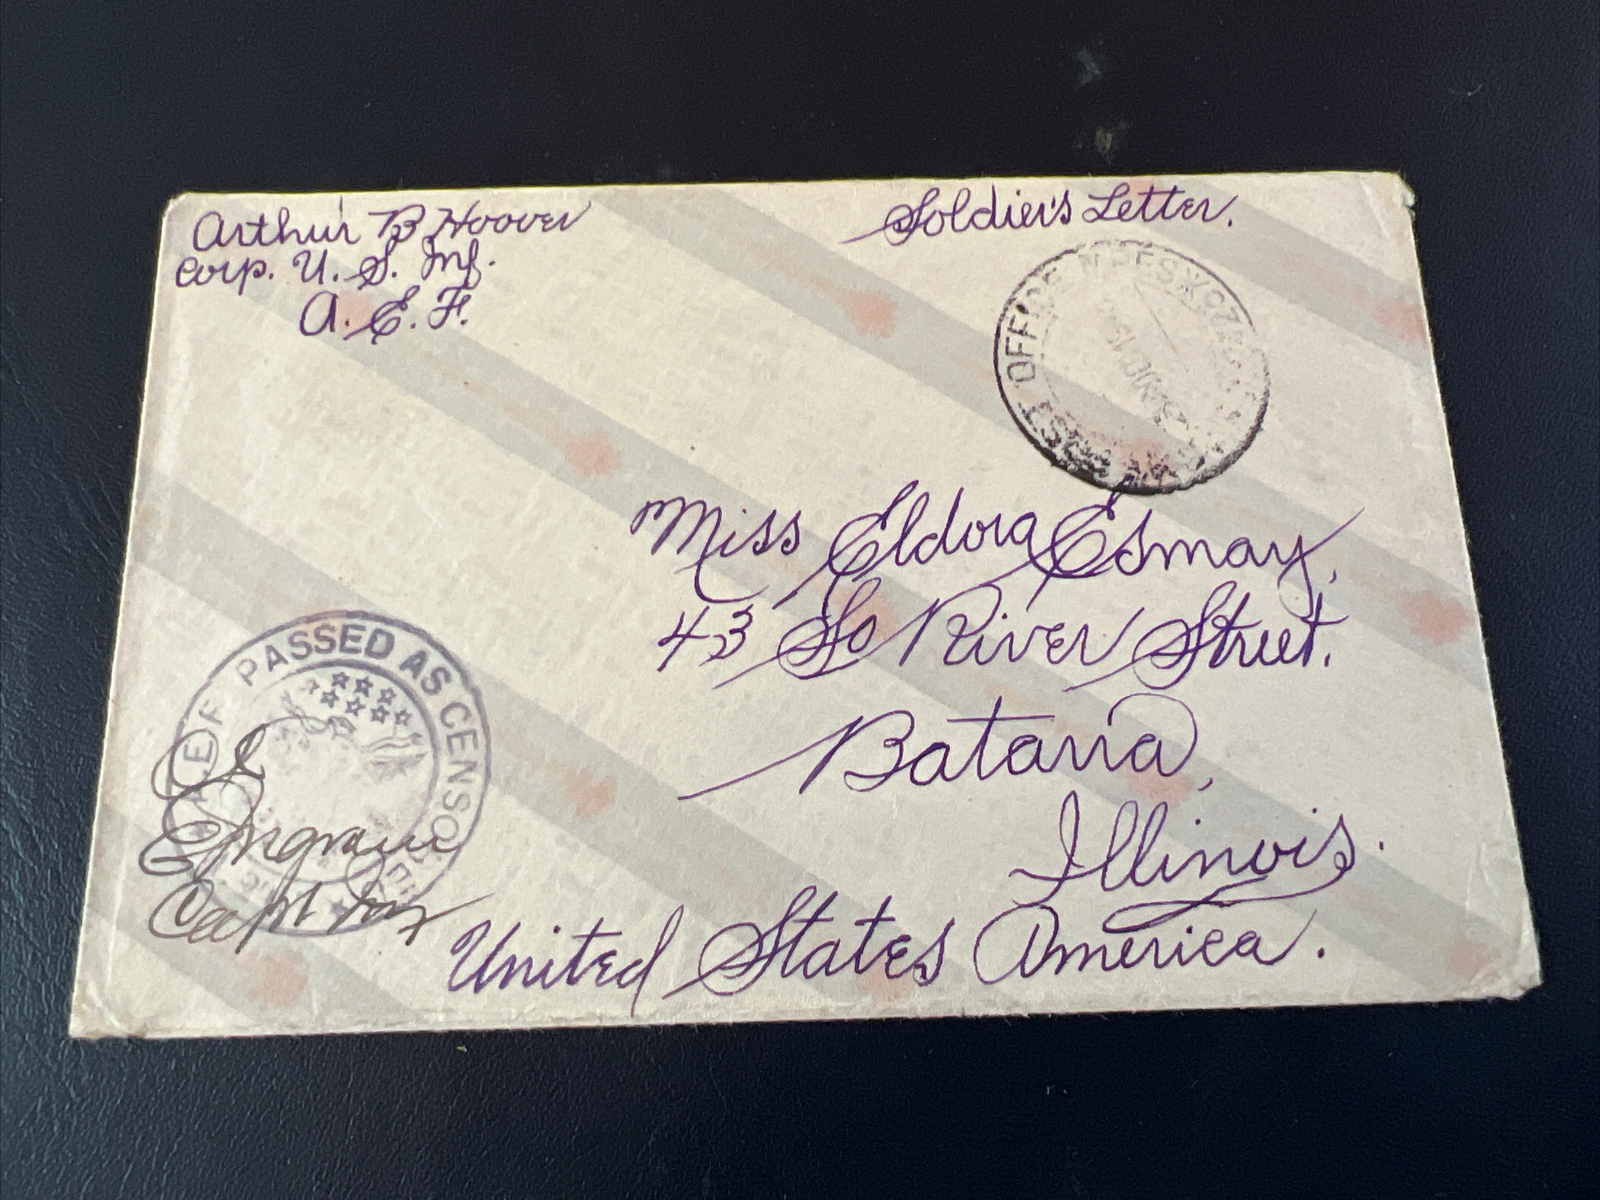 Arthur B Hoover
Corp. U. S. Inf.
A. E. F.
Soldier's Letter.
POST OFFICE
Miss Eldora Esmay,
43 So River Street.
Batavia,
Illinois.
United States America.
A.E.F. PASSED AS CENSORED
Capt Inf